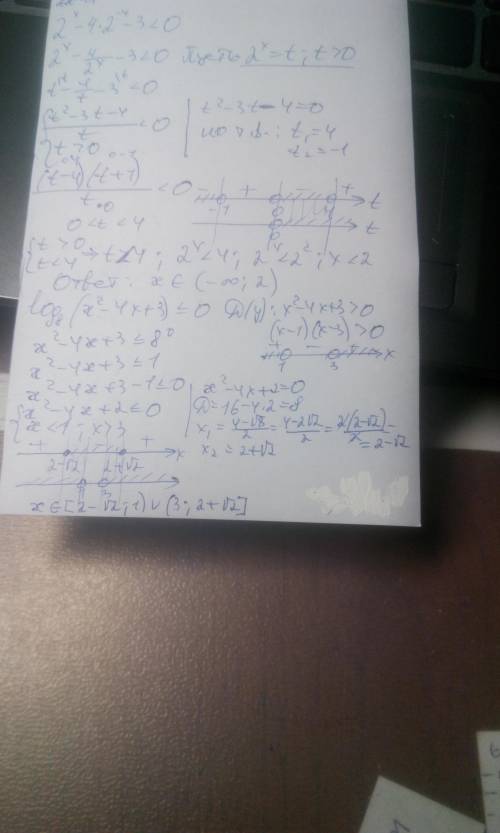 2^x - 4·2^-x - 3 < 0
2^x - 4/2^x - 3 < 0 Пусть 2^x = t; t > 0
t - 4/t - 3 < 0
{ (t² - 3t - 4)/t < 0
t > 0
t² - 3t - 4 = 0
по т.В.: t₁ = 4
t₂ = -1
(t-4)(t+1)/t < 0
- + - + t
-1 0 4
0 t
0 < t < 4
{ t > 0
t < 4 → t < 4; 2^x < 4; 2^x < 2²; x < 2
Ответ: x ∈ (-∞; 2)
log₈(x² - 4x + 3) ≤ 0 D(y): x² - 4x + 3 > 0
(x-1)(x-3) > 0
+ - + x
1 3
x² - 4x + 3 ≤ 8⁰
x² - 4x + 3 ≤ 1
x² - 4x + 3 - 1 ≤ 0
{ x² - 4x + 2 ≤ 0
x < 1; x > 3
x² - 4x + 2 = 0
D = 16 - 4·2 = 8
x₁ = (4-√8)/2 = (4-2√2)/2 = 2(2-√2)/2 =
= 2-√2
x₂ = 2+√2
+ - + x
2-√2 2+√2
1 3
x ∈ [2-√2; 1) ∪ (3; 2+√2]